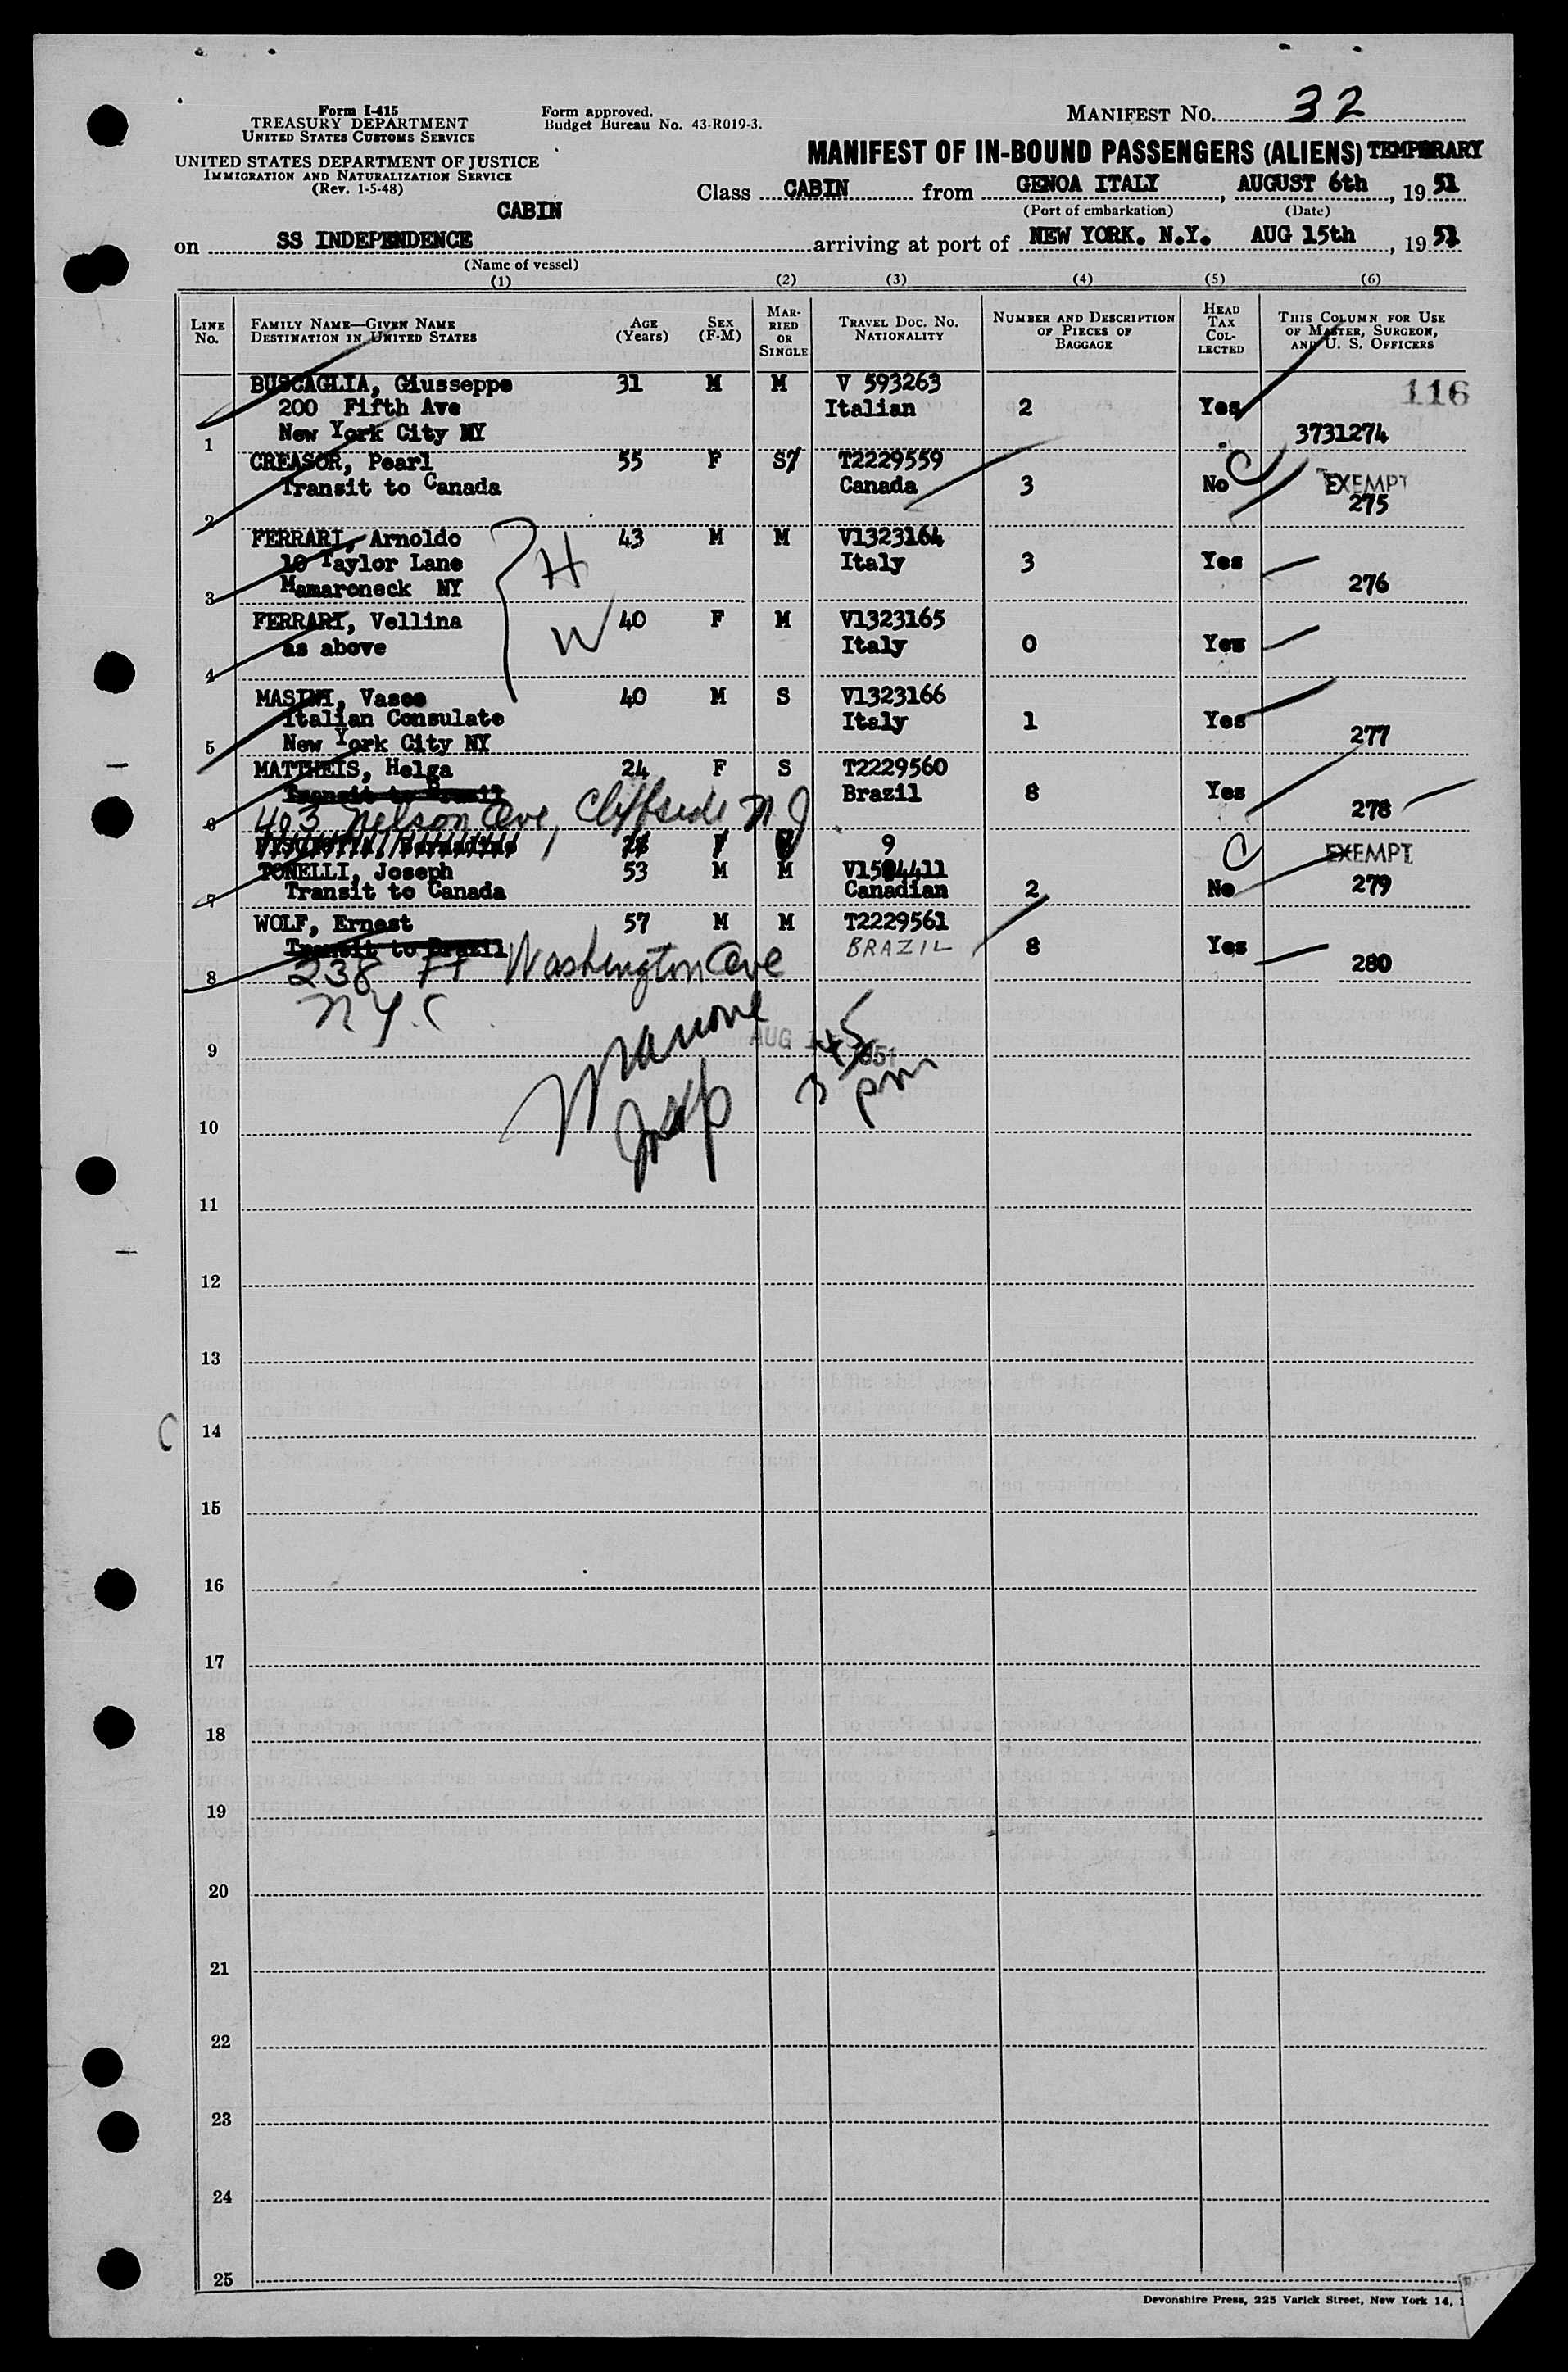 Form I-415
TREASURY DEPARTMENT
UNITED STATES CUSTOMS SERVICE
Form approved.
Budget Bureau No. 43-R019-3.
MANIFEST NO. 32
UNITED STATES DEPARTMENT OF JUSTICE
IMMIGRATION AND NATURALIZATION SERVICE
(Rev. 1-5-48)
MANIFEST OF IN-BOUND PASSENGERS (ALIENS) TEMPORARY
Class CABIN from GENOA ITALY, AUGUST 6th, 1951
(Port of embarkation) (Date)
CABIN
on SS INDEPENDENCE arriving at port of NEW YORK. N.Y. AUG 15th, 1951
(Name of vessel)
(1) (2) (3) (4) (5) (6)
LINE No. FAMILY NAME—GIVEN NAME DESTINATION IN UNITED STATES AGE (Years) SEX (F-M) MARRIED OR SINGLE TRAVEL DOC. NO. NATIONALITY NUMBER AND DESCRIPTION OF PIECES OF BAGGAGE HEAD TAX COLLECTED THIS COLUMN FOR USE OF MASTER, SURGEON, AND U. S. OFFICERS
BUSCAGLIA, Giusseppe 31 M M V 593263 116
200 Fifth Ave Italian 2 Yes
1 New York City NY 3731274
CREASOR, Pearl 55 F S T2229559 C
Transit to Canada Canada 3 No EXEMPT
2 275
FERRARI, Arnoldo 43 M M V1323164
10 Taylor Lane H Italy 3 Yes
3 Mamaroneck NY 276
FERRARI, Vellina W 40 F M V1323165
as above Italy 0 Yes
4
MASINI, Vasco 40 M S V1323166
Italian Consulate Italy 1 Yes
5 New York City NY 277
MATTHEIS, Helga 24 F S T2229560
Transit to Brazil Brazil 8 Yes
6 403 Nelson Ave, Cliffside N J 278
9 C EXEMPT
TONELLI, Joseph 53 M M V1504411
7 Transit to Canada Canadian 2 No 279
WOLF, Ernest 57 M M T2229561
Transit to Brazil BRAZIL 8 Yes
8 238 Ft Washington Ave 280
N.Y.C
9 AUG 1951
3 45 pm
10
11
12
13
C 14
15
16
17
18
19
20
21
22
23
24
25
Devonshire Press, 225 Varick Street, New York 14,